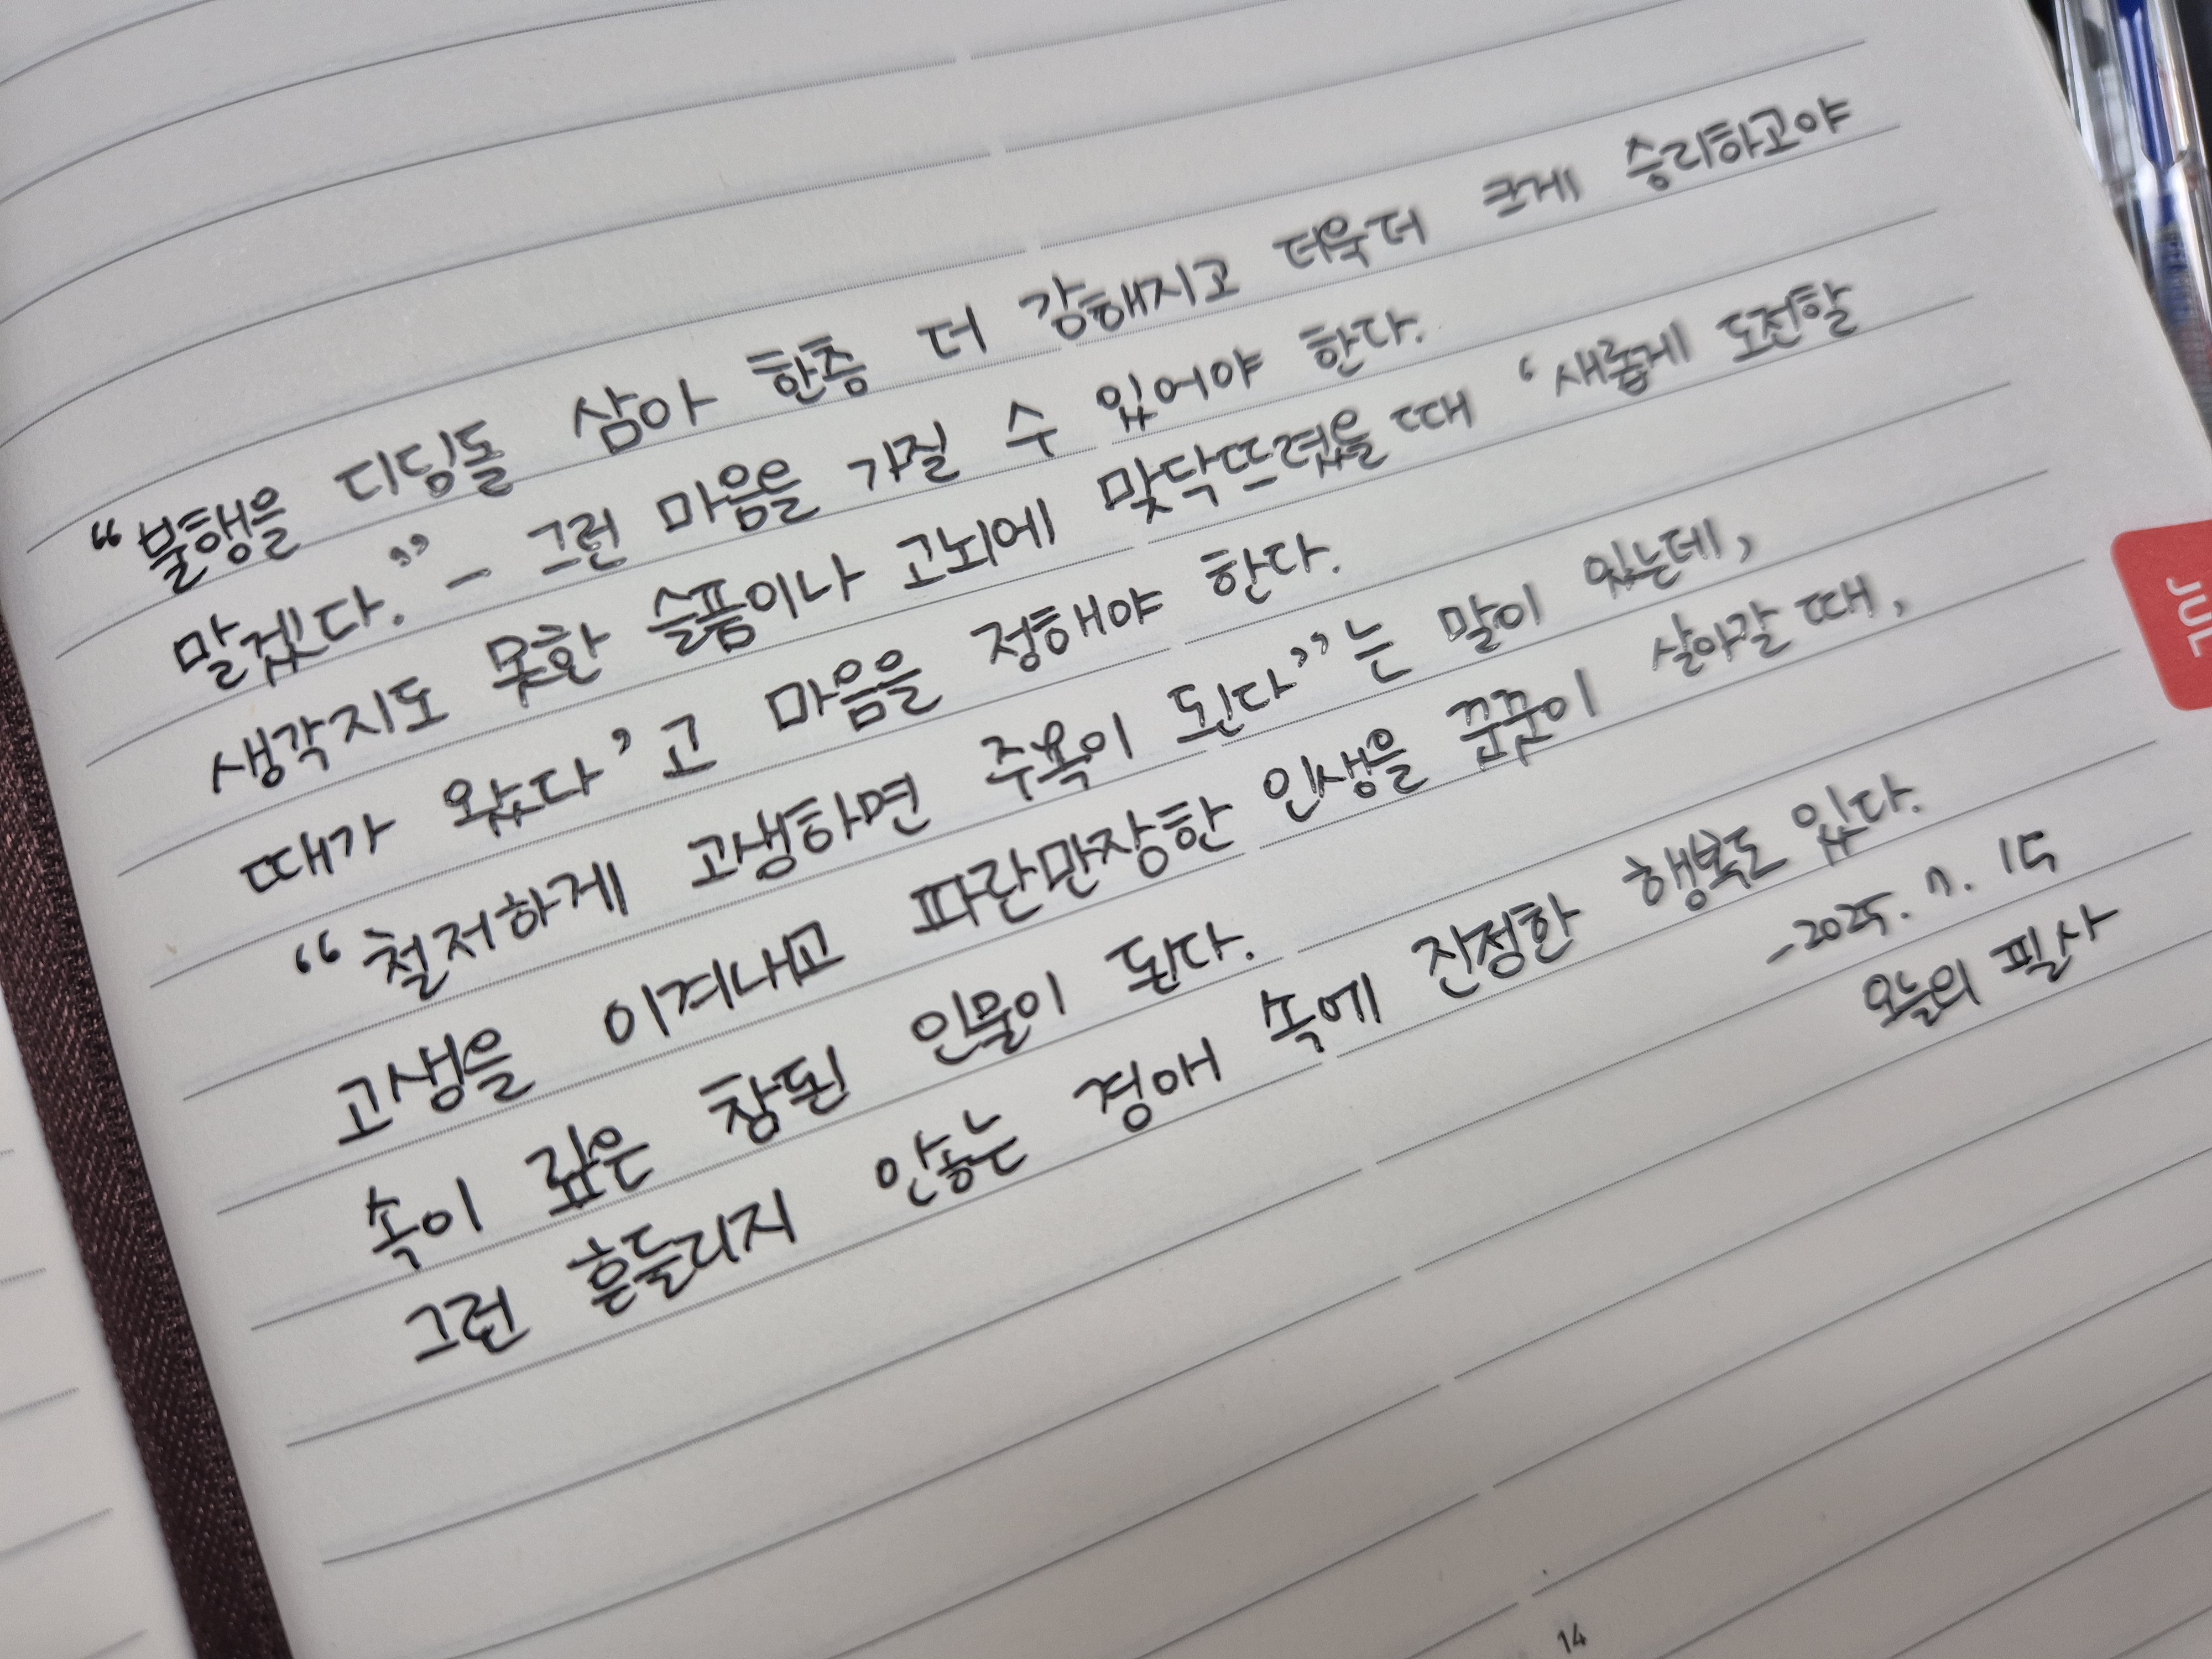 “불행을 디딤돌 삼아 한층 더 강해지고 더욱더 크게 승리하고야
말겠다.” – 그런 마음을 가질 수 있어야 한다.
생각지도 못한 슬픔이나 고뇌에 맞닥뜨렸을 때 ‘새롭게 도전할
때가 왔다’고 마음을 정해야 한다.
“철저하게 고생하면 주옥이 된다”는 말이 있는데,
고생을 이겨내고 파란만장한 인생을 꿋꿋이 살아갈 때,
속이 깊은 참된 인물이 된다.
그런 흔들리지 않는 경애 속에 진정한 행복도 있다.
-2025. 7. 15
오늘의 필사
JUL
14